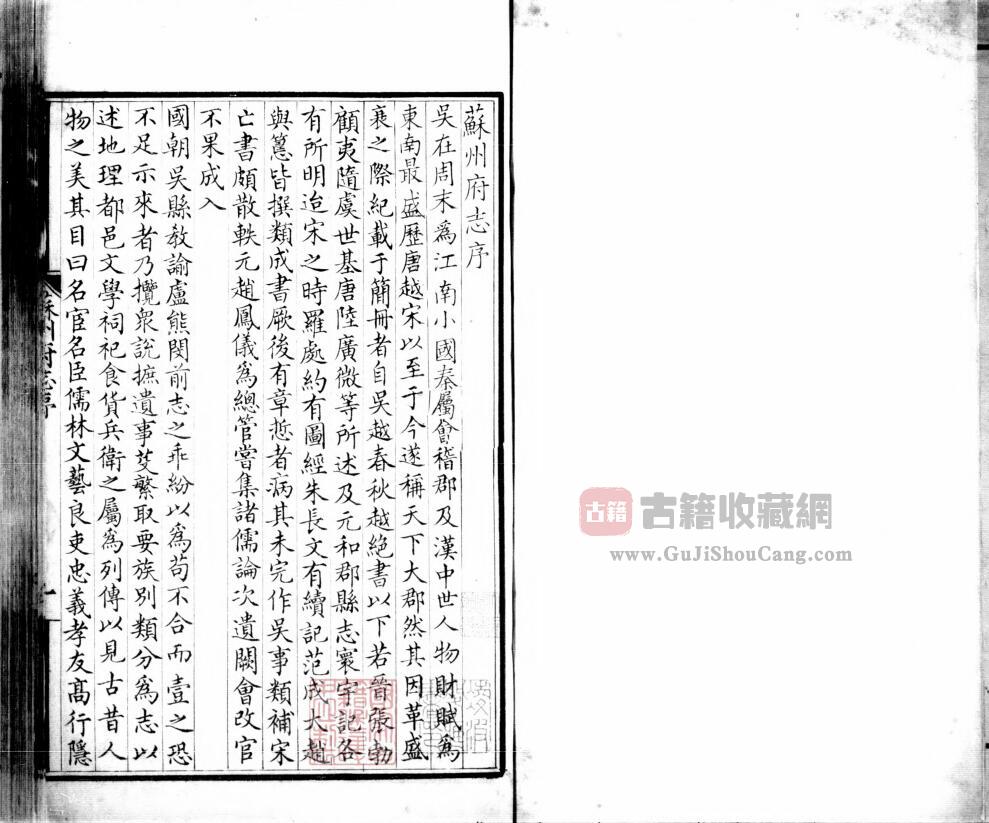 蘇州府志序
吳在周末爲江南小國秦屬會稽郡及漢中世人物財賦爲
東南最盛歷唐越宋以至于今遂稱天下大郡然其因革盛
衰之際紀載于簡冊者自吳越春秋越絕書以下若晉張勃
顧夷隨虞世基唐陸廣微等所述及元和郡縣志寰宇記各
有所明迨宋之時羅處約有圖經朱長文有續記范成大趙
與𥲅皆撰類成書厥後有章悊者病其未完作吳事類補宋
亡書頗散軼元趙鳳儀爲總管嘗集諸儒論次遺闕會改官
不果成入
國朝吳縣教諭盧熊閔前志之乖紛以爲苟不合而壹之恐
不足示來者乃攬衆說摭遺事芟繁取要族別類分爲志以
述地理都邑文學祠祀食貨兵衛之屬爲列傳以見古昔人
物之美其目曰名宦名臣儒林文藝良吏忠義孝友高行隱
蘇州府志序
一
古籍
古籍收藏網
www.GuJiShouCang.com